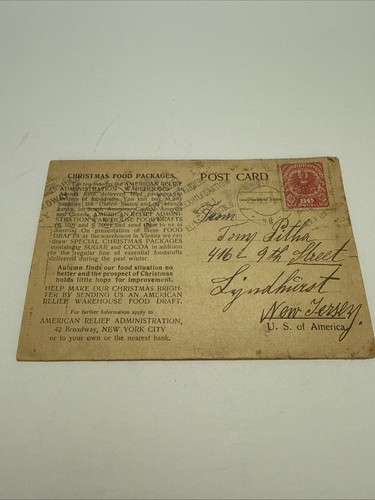 CHRISTMAS FOOD PACKAGES.
AMERICAN RELIEF
ADMINISTRATION WAREHOUSE
the United States and
and Canada. AMERICAN RELIEF ADMINI-
STRATION WAREHOUSE FOOD DRAFTS
On presentation of these FOOD
DRAFTS at the warehouse in Vienna we can
draw SPECIAL CHRISTMAS PACKAGES
containing SUGAR and COCOA in addition
to the regular line of essential foodstuffs
delivered during the past winter.
Autumn finds our food situation no
better and the prospect of Christmas
holds little hope for improvement.
HELP MAKE OUR CHRISTMAS BRIGH-
TER BY SENDING US AN AMERICAN
RELIEF WAREHOUSE FOOD DRAFT.
For further information apply to
AMERICAN RELIEF ADMINISTRATION,
42 Broadway, NEW YORK CITY
or to your own or the nearest bank.
POST CARD
Tom Pitha
416 9th Street
Lyndhurst
New Jersey.
U. S. of America.